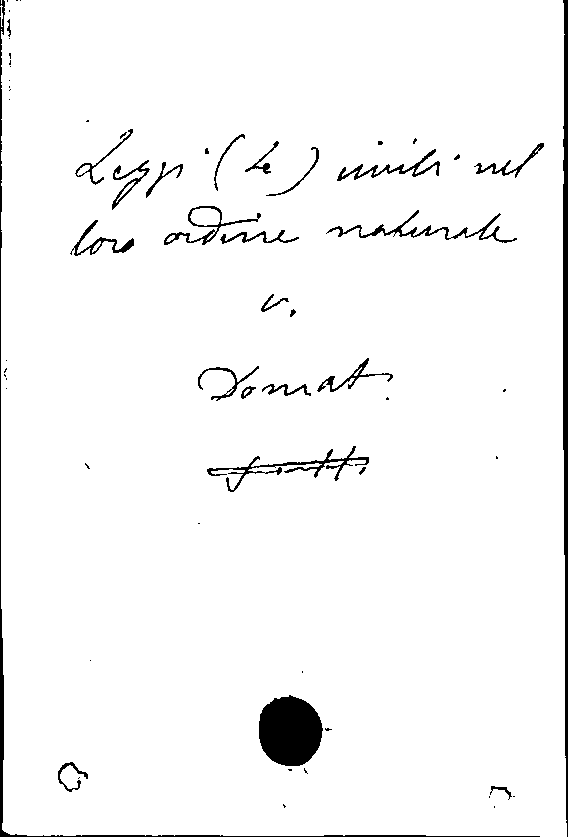 Leggi (Le) civili nel
loro ordine naturale
v.
Domat.